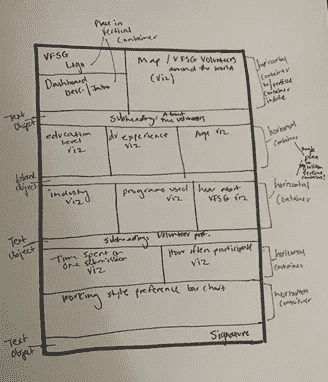 Place in
vertical
container
VFSG
Logo
Map / VFSG Volunteers
around the world
(viz)
Dashboard
desc. / Intro
horizontal
container
w/ vertical
container
inside
Text
Object
Subheading: About
the volunteers
education
level
viz
dv experience
viz
Age viz
horizontal
container
place in
vertical
container
blank
object
industry
viz
programs used
viz
hear about
VFSG viz
horizontal
container
Text
Object
subheading: Volunteer pref.
Time spent on
one submission
viz
How often participate
viz
horizontal
container
working style preference bar chart
horizontal
container
Text
Object
Signature